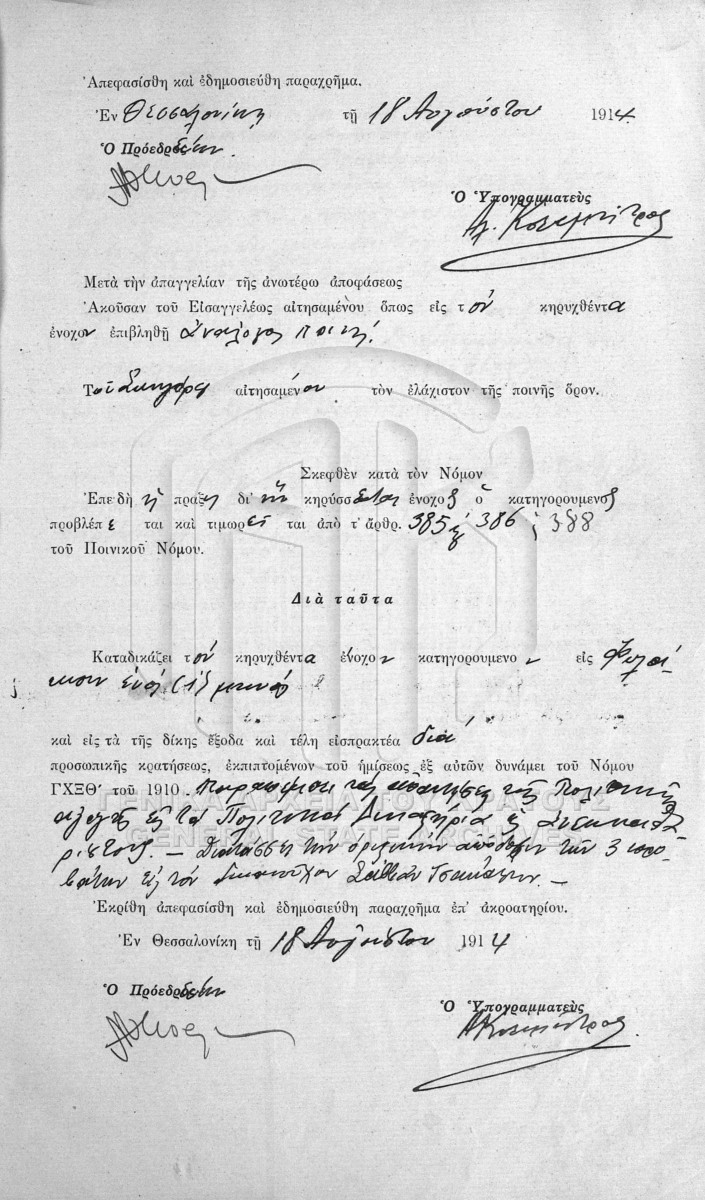 Ἀπεφασίσθη καὶ ἐδημοσιεύθη παραχρῆμα.
Ἐν Θεσσαλονίκῃ τῇ 18 Αὐγούστου 1914
Ὁ Προεδρεύων
Ὁ Ὑπογραμματεὺς
Μετὰ τὴν ἀπαγγελίαν τῆς ἀνωτέρω ἀποφάσεως
Ἀκοῦσαν τοῦ Εἰσαγγελέως αἰτησαμένου ὅπως εἰς τὸν κηρυχθέντα
ἔνοχον ἐπιβληθῇ ἀνάλογος ποινή.
Τοῦ Συνηγόρου αἰτησαμένου τὸν ἐλάχιστον τῆς ποινῆς ὅρον.
Σκεφθὲν κατὰ τὸν Νόμον
Ἐπε δὴ ἡ πρᾶξις δι' ἣν κηρύσσεται ἔνοχος ὁ κατηγορουμενος
προβλέπεται καὶ τιμωρεῖται ἀπὸ τ' ἄρθρ. 385 386 388
τοῦ Ποινικοῦ Νόμου.
Διὰ ταῦτα
Καταδικάζει τὸν κηρυχθέντα ἔνοχον κατηγορουμενον εἰς φυλά-
κισιν ἑνὸς (1) μηνός
καὶ εἰς τὰ τῆς δίκης ἔξοδα καὶ τέλη εἰσπρακτέα διὰ
προσωπικῆς κρατήσεως, ἐκπιπτομένων τοῦ ἡμίσεως ἐξ αὐτῶν δυνάμει τοῦ Νόμου
ΓΧΞΘ' τοῦ 1910. τὰς ἀπαιτήσεις τῆς Πολιτικῆς
ἀγωγῆς εἰς τὰ Πολιτικὰ Δικαστήρια ὡς ἀνεκκαθα-
ρίστους. — Διατάσσει τὴν ὁριστικὴν ἀπόδοσιν τῶν 3 προ-
βάτων εἰς τὸν
ΓΕΝΙΚΑ ΑΡΧΕΙΑ ΤΟΥ ΚΡΑΤΟΥΣ
GENERAL STATE ARCHIVES
Ἐκρίθη ἀπεφασίσθη καὶ ἐδημοσιεύθη παραχρῆμα ἐπ' ἀκροατηρίου.
Ἐν Θεσσαλονίκη τῇ 18 Αὐγούστου 1914
Ὁ Προεδρεύων
Ὁ Ὑπογραμματεὺς